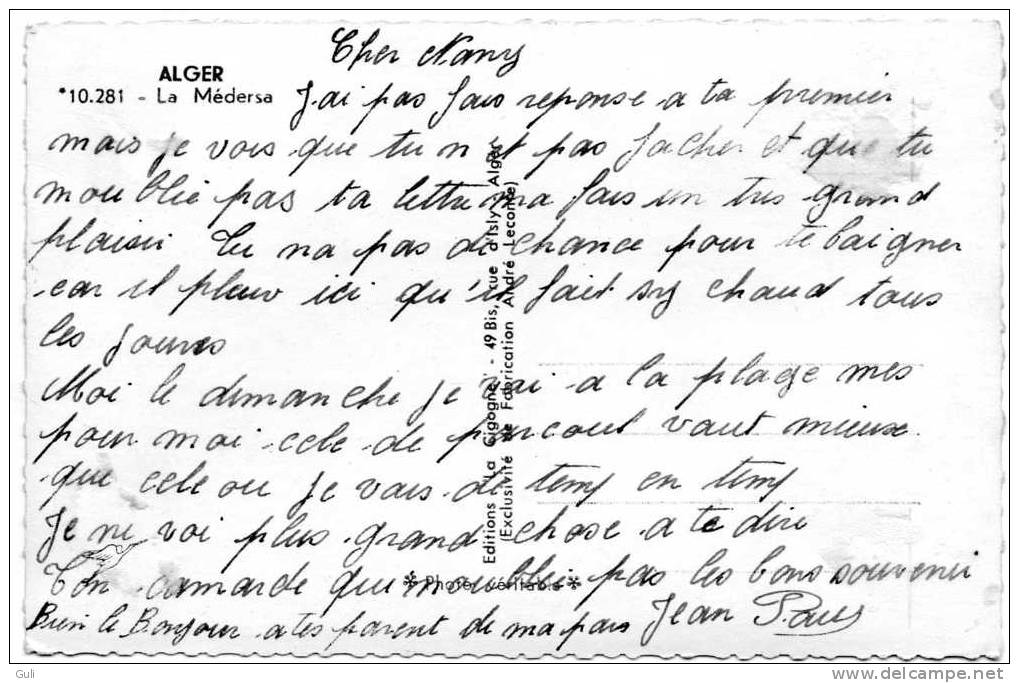 Cher Nany
ALGER
*10.281 - La Médersa
J'ai pas fais reponse a ta premier
mais je vois que tu n'et pas facher et que tu
moublie pas ta lettre ma fais un tres grand
plaisir Tu na pas de chance pour te baigner
car il pleuv ici qu'il fait sy chaud tous
les jours
Moi le dimanche je vai a la plage mes
pour moi cele de vaut mieux
que cele ou je vais de temps en temps
Je ne voi plus grand chose a te dire
Ton camarde qui moublie pas les bons souvenir
Jean Paul
Bien le Bonjour a tes parent de ma pars
Editions "La Cigogne" - 49 Bis, rue d'Isly - Alger
(Exclusivité de Fabrication André Leconte)
* Photo véritable *
Guli
www.delcampe.net